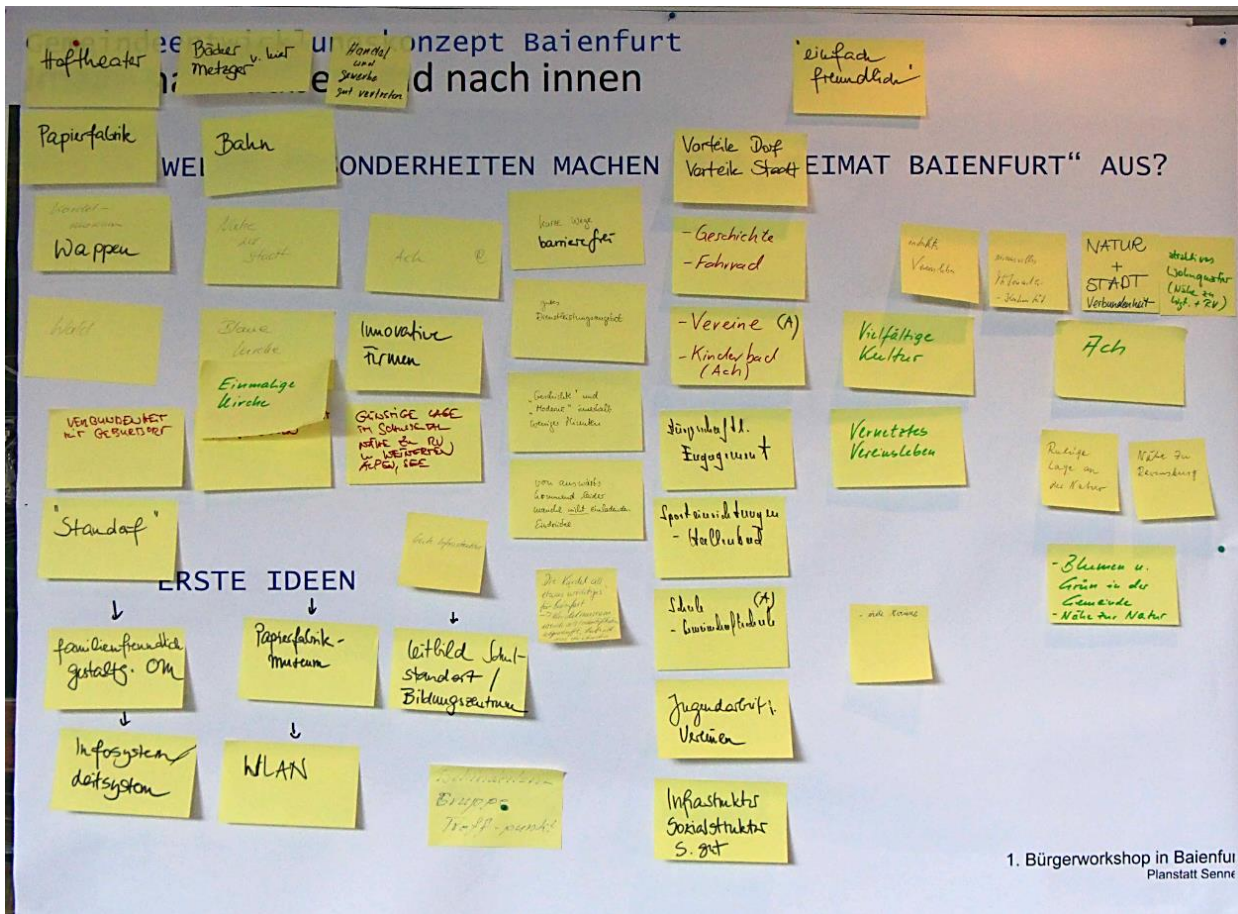 Gemeindeentwicklungskonzept Baienfurt
nd nach innen
Hoftheater
Bäcker u.
Metzger v. hier
Handel
und
Gewerbe
gut vertreten
"einfach
freundlich"
Papierfabrik
Bahn
Vorteile Dorf
Vorteile Stadt
WEL
SONDERHEITEN MACHEN
EIMAT BAIENFURT“ AUS?
Wappen
Nähe
zur
Stadt
Ach
kurze Wege
barrierefrei
- Geschichte
- Fahrrad
NATUR
+
STADT
Verbundenheit
attraktives
Wohnquartier
(Nähe zu
Wgt. + RV)
Wald
Blaue
Kirche
Einmalige
Kirche
Innovative
Firmen
gutes
Dienstleistungsangebot
- Vereine (A)
- Kinderbad
(Ach)
Vielfältige
Kultur
Ach
VERBUNDENHEIT
MIT GEBURTSORT
GÜNSTIGE LAGE
IM SCHUSSENTAL
NÄHE ZU RV
U. WEINGARTEN
ALPEN, SEE
„Geschichte" und
„Moderne" innerhalb
weniger Minuten
Bürgerschaftl.
Engagement
Vernetztes
Vereinsleben
Ruhige
Lage an
der Natur
Nähe zu
Ravensburg
"Standorf"
von auswärts
kommend leider
manche nicht einladenden
Eindrücke
Sporteinrichtungen
- Hallenbad
- Blumen u.
Grün in der
Gemeinde
- Nähe zur Natur
ERSTE IDEEN
Schule (A)
- Gemeinschaftsschule
familienfreundlich
gestaltg. OM
Papierfabrik-
museum
Leitbild Schul-
standort /
Bildungszentrum
Jugendarbeit i.
Vereinen
Infosystem/
Leitsystem
WLAN
Gruppe
Treff-punkt
Infrastruktur
Sozialstruktur
s. gut
1. Bürgerworkshop in Baienfur
Planstatt Senne